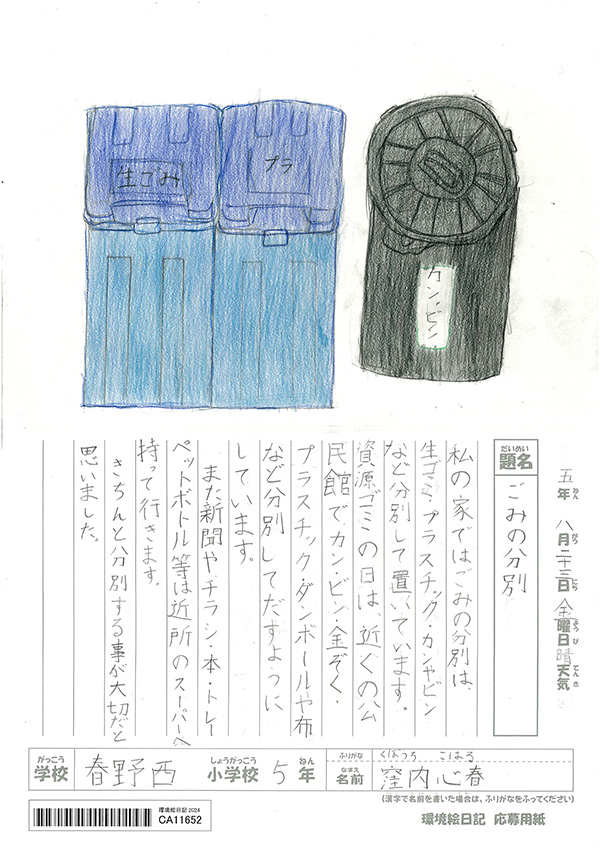 生ごみ
プラ
カン・ビン
五年 八月二十三日 金曜日 晴天気
ねん がつ にち よう び てん き
だいめい
題名
ごみの分別
私の家ではごみの分別は、
生ゴミ・プラスチック・カンやビン
など分別して置いています。
資源ゴミの日は、近くの公
民館でカン・ビン・金ぞく・
プラスチック・ダンボールや布
など分別してだすように
しています。
また新聞やチラシ・本・トレー
ペットボトル等は近所のスーパーへ
持って行きます。
きちんと分別する事が大切だと
思いました。
がっこう しょうがっこう ねん ふりがな くぼうち こはる
学校 春野西 小学校 5年 なまえ 名前 窪内心春
(漢字で名前を書いた場合は、ふりがなをふってください)
環境絵日記 2024
CA11652
環境絵日記 応募用紙